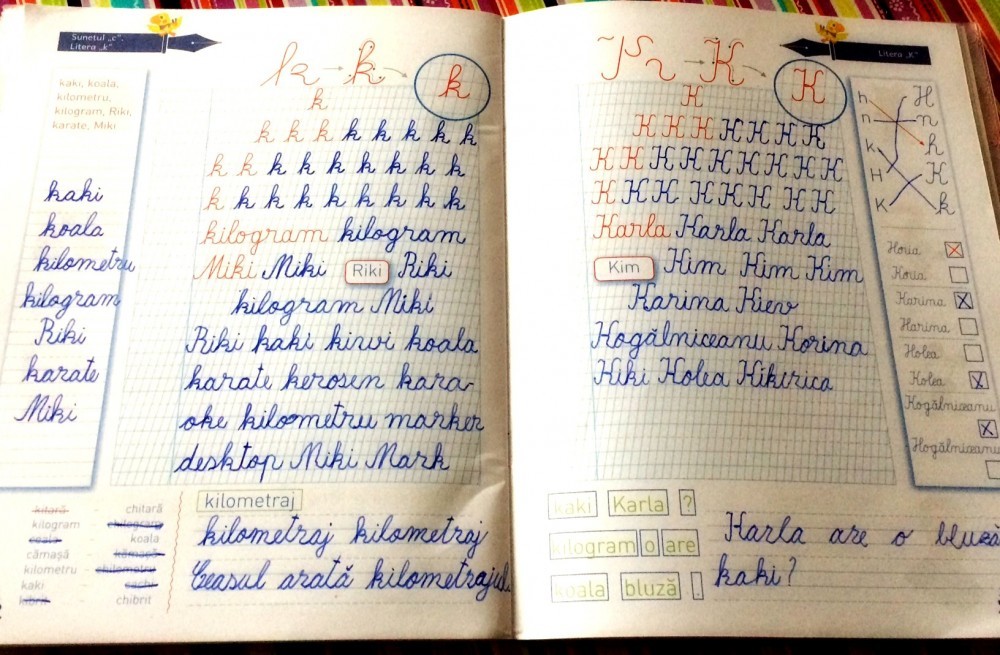 Sunetul „c”.
Litera „k”
kaki, koala,
kilometru,
kilogram, Riki,
karate, Miki
kaki
koala
kilometru
kilogram
Riki
karate
Miki
k k
k
k
k k k k k k k k
k k k k k k k k k
k k k k k k k k k
kilogram kilogram
Miki Miki Riki Riki
kilogram Miki
Riki kaki kiwi koala
karate kerosen kara-
oke kilometru marker
desktop Miki Mark
kitară - chitară
kilogram - chilogram
coala - koala
cămașă - kămașă
kilometru - chilometru
kaki - cachi
kibrit - chibrit
kilometraj
kilometraj kilometraj
Ceasul arată kilometrajul.
Litera „K”
K
K
K
K K K K K K K
K K K K K K K K K
K K K K K K K K
Karla Karla Karla
Kim Kim Kim Kim
Karina Kiev
Kogălniceanu Korina
Kiki Kolea Kikirica
h H
n n
k h
H K
K k
Horia
Koria
Karina
Harina
Holea
Kolea
Kogălniceanu
Hogălniceanu
kaki Karla ?
kilogram o are
koala bluză .
Karla are o bluză
kaki?